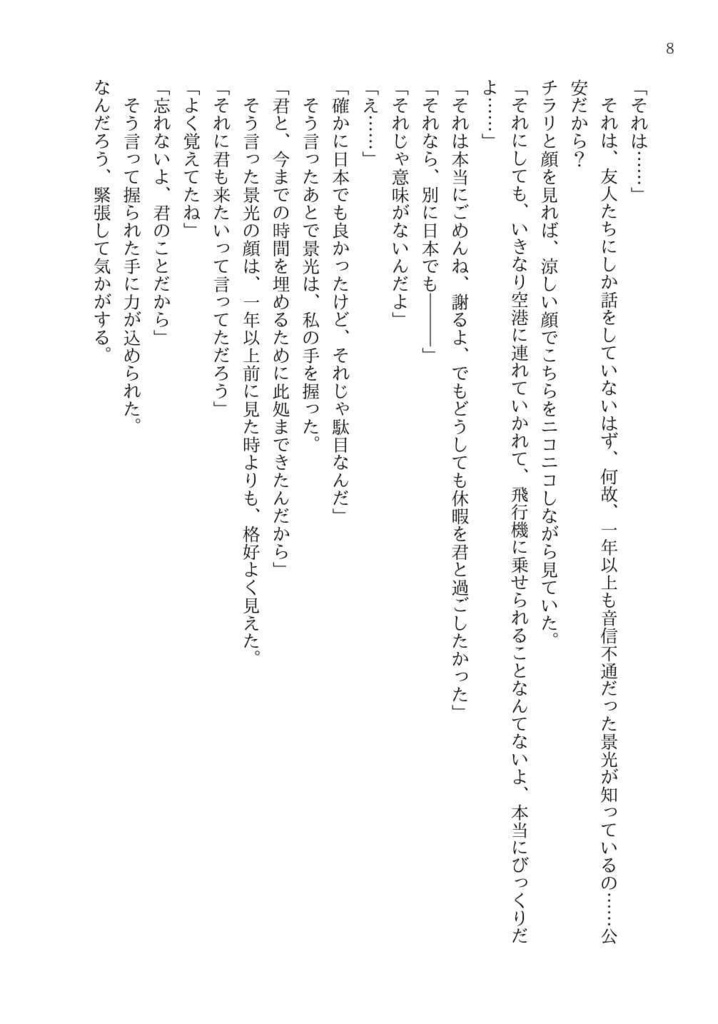 8
「それは……」
それは、友人たちにしか話をしていないはず、何故、一年以上も音信不通だった景光が知っているの……公
安だから?
チラリと顔を見れば、涼しい顔でこちらをニコニコしながら見ていた。
「それにしても、いきなり空港に連れていかれて、飛行機に乗せられることなんてないよ、本当にびっくりだ
よ……」
「それは本当にごめんね、謝るよ、でもどうしても休暇を君と過ごしたかった」
「それなら、別に日本でも―――」
「それじゃ意味がないんだよ」
「え……」
「確かに日本でも良かったけど、それじゃ駄目なんだ」
そう言ったあとで景光は、私の手を握った。
「君と、今までの時間を埋めるために此処まできたんだから」
そう言った景光の顔は、一年以上前に見た時よりも、格好よく見えた。
「それに君も来たいって言ってただろう」
「よく覚えてたね」
「忘れないよ、君のことだから」
そう言って握られた手に力が込められた。
なんだろう、緊張して気かがする。